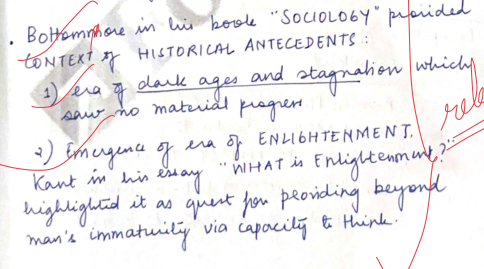 • Bottommore in his book "SOCIOLOGY" provided
CONTEXT of HISTORICAL ANTECEDENTS :
1) era of dark ages and stagnation which
saw no material progress
2) Emergence of era of ENLIGHTENMENT.
Kant in his essay "WHAT is Enlightenment?"
highlighted it as quest for providing beyond
man's immaturity via capacity to think.